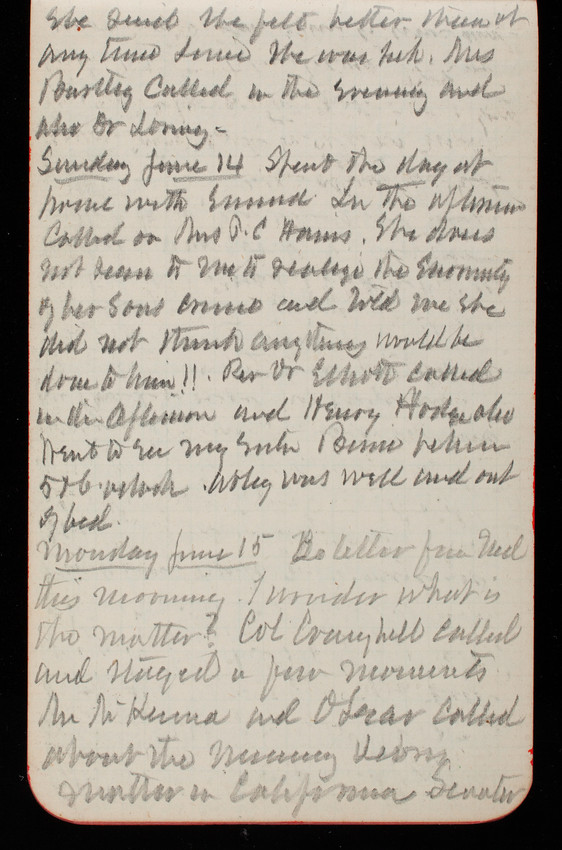 She said she felt better than at
any time since she was sick. Mrs
Bartley called in the evening and
also Dr Loring -
Sunday June 14 Spent the day at
home with Emma In the afternoon
called on Mrs Harris. She does
not seem to me to realize the enormity
of her sons crime and told me she
did not think anything would be
done to him!! Rev Dr Elliott called
in the afternoon and Henry Hodge also
Went to see my sister between
5 & 6 oclock. Abby was well and out
of bed.
Monday June 15 No letter from Ned
this morning. I wonder what is
the matter? Col Campbell called
and stayed a few moments
Mr McKenna and Oscar called
about the
matter in California Senator